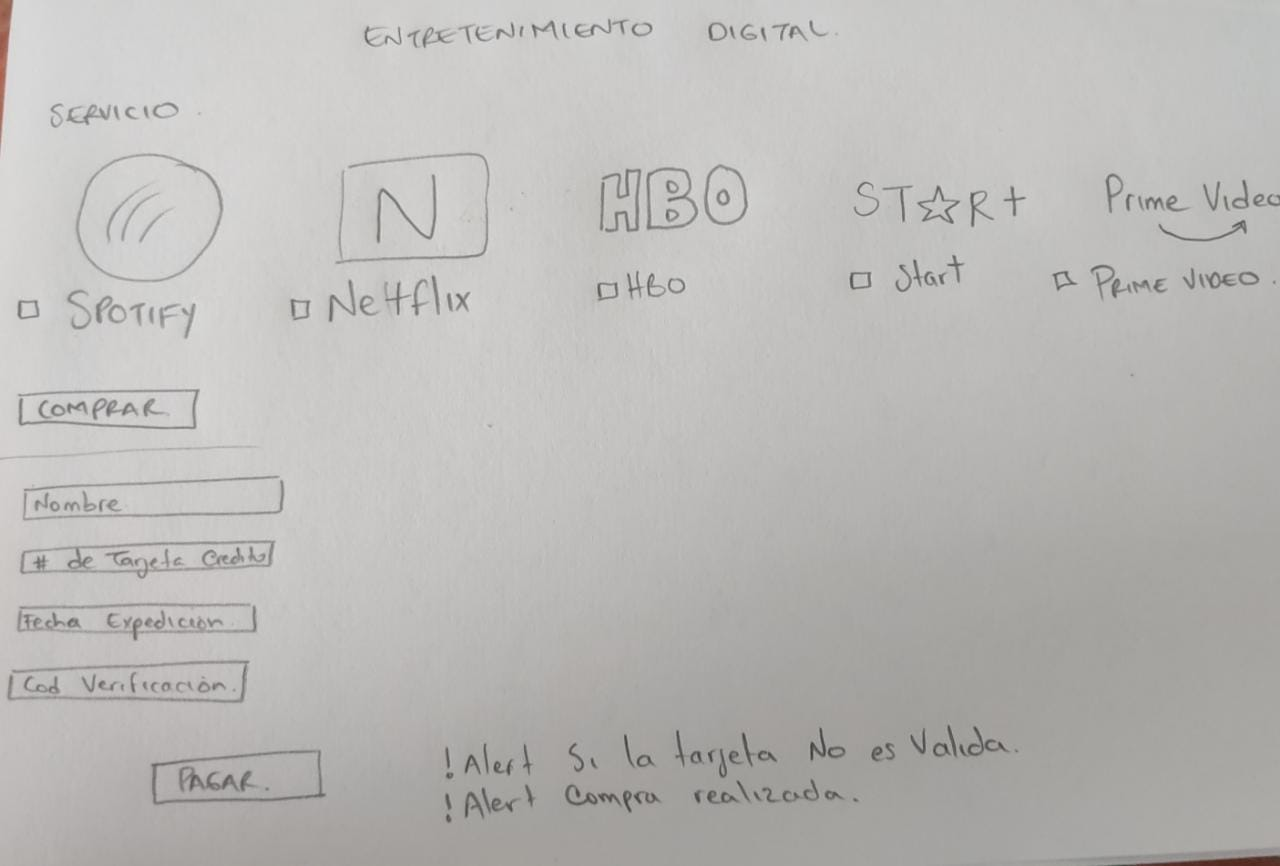 ENTRETENIMIENTO DIGITAL.
SERVICIO.
N HBO ST☆R+ Prime Video
SPOTIFY Netflix HBO Start PRIME VIDEO.
COMPRAR
Nombre
# de Targeta Credito
Fecha Expedición
Cod Verificación.
PAGAR.
!Alert Si la tarjeta No es Valida.
!Alert Compra realizada.